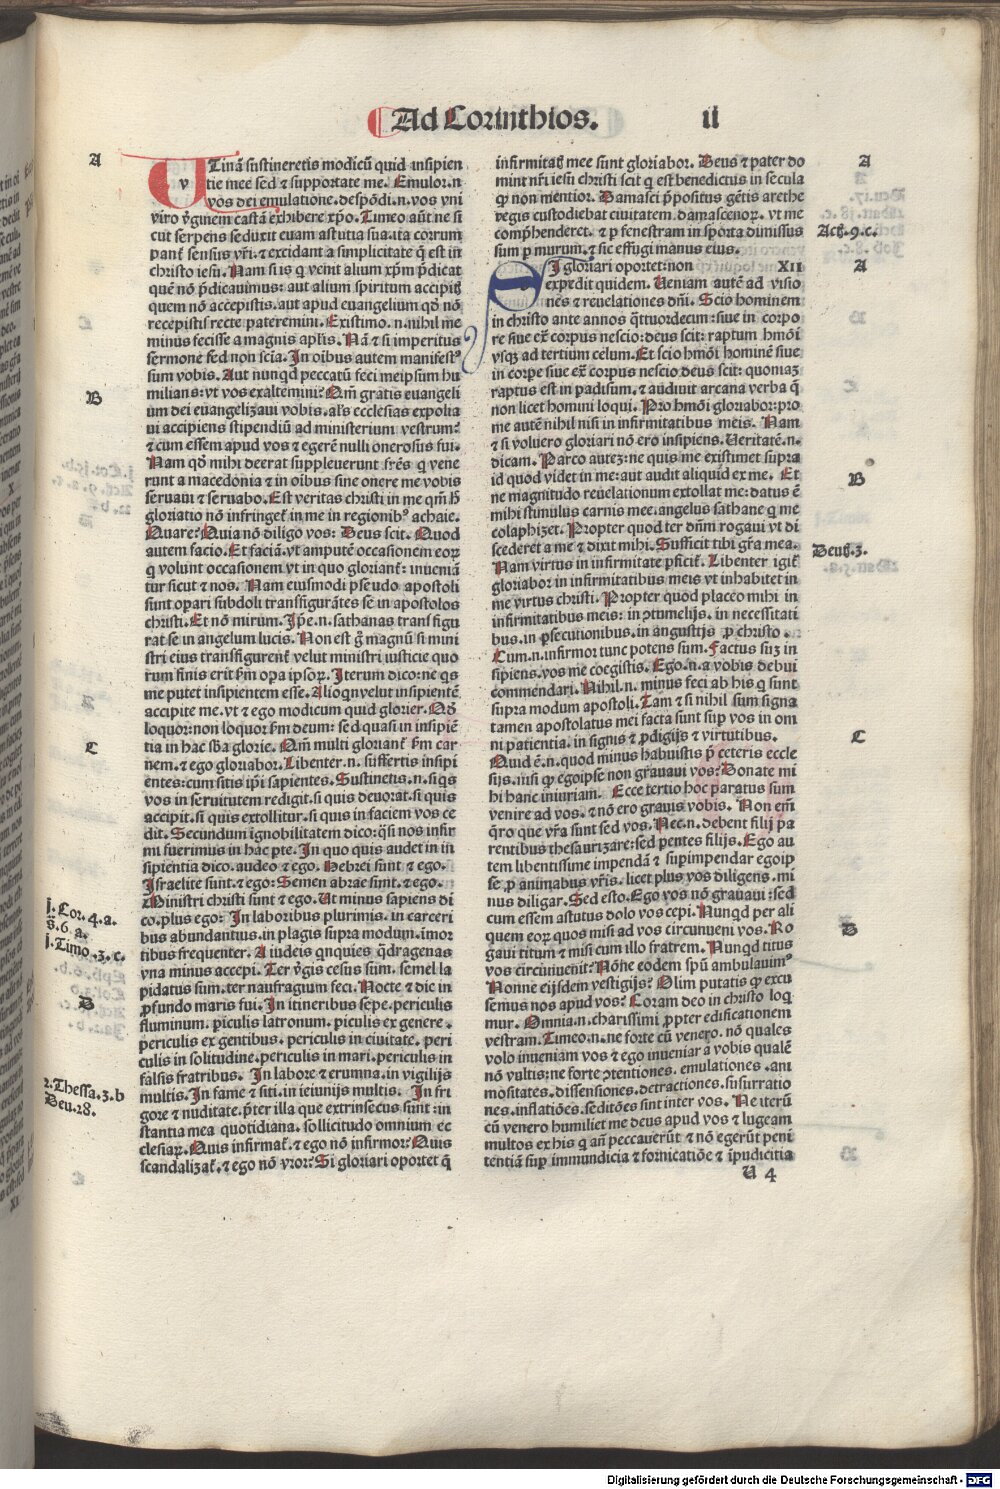 Ad Corinthios. II
A
Tinā sustineretis modicū quid insipien
v tie mee sed ⁊ supportate me. Emulor.n
vos dei emulatione.despōdi.n.vos vni
viro v̄ginem castā exhibere xp̄o. Timeo aūt ne si
cut serpens seduxit euam astutia sua.ita corrum
panť sensus vr̄i.⁊ excidant a simplicitate q̄ est in
christo iesu. Nam si is q̇ venit alium xp̄m p̄dicat
quē nō p̄dicauimus: aut alium spiritum accipiť
quem nō accepistis.aut apud euangelium qd̄ nō
recepistis recte pateremini. Existimo.n.nihil me
minus fecisse a magnis aplis. Nā ⁊ si imperitus
sermone sed non scia. In oībus autem manifestꝰ
sum vobis. Aut nunqd̄ peccatū feci meipsum hu
milians:vt vos exaltemini? Qm̄ gratis euangeli
B
um dei euangelizaui vobis.al's ecclesias expolia
ui accipiens stipendiū ad ministerium vestrum?
⁊ cum essem apud vos ⁊ egerē nulli onerosus fui.
Nam qd̄ mihi deerat suppleuerunt frēs q̇ vene
runt a macedonia ⁊ in oībus sine onere me vobis
seruaui ⁊ seruabo. Est veritas christi in me qm̄ h̄
gloriatio nō infringeť in me in regionibꝰ achaie.
Quare? Quia nō diligo vos: Deus scit. Quod
autem facio. Et faciā.vt amputē occasionem eoꝝ
q̇ volunt occasionem vt in quo glorianť: inueniā
tur sicut ⁊ nos. Nam eiusmodi pseudo apostoli
sunt opari subdoli transfigurātes se in apostolos
christi. Et nō mirum. Ip̄e.n.sathanas transfigu
rat se in angelum lucis. Non est g̊ magnū si mini
stri eius transfigurenť velut ministri iusticie quo
rum finis erit s̄m opa ipsoꝝ. Iterum dico:ne q̇s
me putet insipientem esse. Alioqn velut insipientē
accipite me.vt ⁊ ego modicum quid glorier. Qd̄
loquor:non loquor s̄m deum: sed quasi in insipiē
C
tia in hac sba glorie. Qm̄ multi glorianť s̄m car
nem.⁊ ego gloriabor. Libenter.n. suffertis insipi
entes:cum sitis ip̄i sapientes. Sustinetis.n.si q̇s
vos in seruitutem redigit.si quis deuorat.si quis
accipit.si quis extollitur.si quis in faciem vos ce
dit. Secundum ignobilitatem dico:q̄si nos infir
mi fuerimus in hac pte. In quo quis audet in in
sipientia dico.audeo ⁊ ego. Hebrei sunt ⁊ ego.
Israelite sunt.⁊ ego: Semen abrae sunt.⁊ ego.
j. Cor. 4. a.
Ministri christi sunt ⁊ ego. Ut minus sapiens di
s̄. 6. a.
co.plus ego: In laboribus plurimis.in carceri
bus abundantius.in plagis supra modum.ī mor
j. Timo .3. c.
tibus frequenter. A iudeis qnquies q̄dragenas
vna minus accepi. Ter v̄gis cesus sum. semel la
pidatus sum.ter naufragium feci. Nocte ⁊ die in
D
pfundo maris fui. In itineribus sepe.periculis
fluminum.piculis latronum.piculis ex genere.
periculis ex gentibus.periculis in ciuitate.peri
culis in solitudine.periculis in mari.periculis in
falsis fratribus. In labore ⁊ erumna.in vigilijs
2. Thessa. 3. b
multis. In fame ⁊ siti.in ieiunijs multis. In fri
Deu. 28.
gore ⁊ nuditate.p̄ter illa que extrinsecus sunt:in
stantia mea quotidiana.sollicitudo omnium ec
clesiaꝝ. Quis infirmať.⁊ ego nō infirmor? Quis
scandalizať.⁊ ego nō vror? Si gloriari oportet q̄
infirmitať mee sunt gloriabor. Deus ⁊ pater do
A
mini nr̄i iesu christi scit q̇ est benedictus in secula
q non mentior. Damasci p̄positus gētis arethe
regis custodiebat ciuitatem.damascenoꝝ.vt me
comp̄henderet.⁊ p fenestram in sporta dimissus
Act. 9. c.
sum p murum.⁊ sic effugi manus eius.
I gloriari oportet:non XII
A
expedit quidem. Ueniam autē ad visio
nes ⁊ reuelationes dn̄i. Scio hominem
in christo ante annos q̄ttuordecum:siue in corpo
re siue ex̄ corpus nescio:deus scit: raptum hmōi
vsqꝫ ad tertium celum. Et scio hmōi hominē siue
in corpe siue ex̄ corpus nescio deus scit: quoniaꝫ
raptus est in padisum.⁊ audiuit arcana verba q̄
non licet homini loqui. Pro hmōi gloriabor:pro
me autē nihil nisi in infirmitatibus meis. Nam
⁊ si voluero gloriari nō ero insipiens. Ueritatē.n.
dicam. Parco auteꝫ:ne quis me existimet supra
id quod videt in me:aut audit aliquid ex me. Et
B
ne magnitudo reuelationum extollat me:datus ē
mihi stimulus carnis mee.angelus sathane q̇ me
colaphizet. Propter quod ter dn̄m rogaui vt di
scederet a me ⁊ dixit mihi. Sufficit tibi gr̄a mea.
Deut̄. 3.
Nam virtus in infirmitate pficiť. Libenter igiť
gloriabor in infirmitatibus meis vt inhabitet in
me virtus christi. Propter quod placeo mihi in
infirmitatibus meis: in ꝯtumelijs. in necessitati
bus.in psecutionibus.in angustijs p christo.
Cum.n.infirmor tunc potens sum. Factus suꝫ in
sipiens.vos me coegistis. Ego.n.a vobis debui
commendari. Nihil.n. minus feci ab his q̇ sunt
supra modum apostoli. Tam ⁊ si nihil sum signa
tamen apostolatus mei facta sunt sup vos in om
C
ni patientia.in signis ⁊ pdigijs ⁊ virtutibus.
Quid ē.n.quod minus habuistis p̄ ceteris eccle
sijs.nisi q egoipse non grauaui vos? Donate mi
hi hanc iniuriam. Ecce tertio hoc paratus sum
venire ad vos.⁊ nō ero grauis vobis. Non em̄
q̄ro que vr̄a sunt sed vos. Nec.n.debent filij pa
rentibus thesaurizare:sed pentes filijs. Ego au
tem libentissime impendā ⁊ supimpendar egoip
se p animabus vr̄is.licet plus vos diligens.mi
nus diligar. Sed esto. Ego vos nō grauaui:sed
cum essem astutus dolo vos cepi. Nunqd per ali
D
quem eoꝝ quos misi ad vos circunueni vos. Ro
gaui titum ⁊ misi cum illo fratrem. Nunqd titus
vos circūuenit? Nōne eodem spū ambulauimꝰ
Nonne eijsdem vestigijs? Olim putatis q excu
semus nos apud vos? Coram deo in christo loq̇
mur. Omnia.n.charissimi ppter edificationem
vestram. Timeo.n.ne forte cū venero.nō quales
volo inueniam vos ⁊ ego inueniar a vobis qualē
nō vultis:ne forte ꝯtentiones.emulationes.ani
mositates.dissensiones.detractiones.susurratio
nes.inflatiōes.seditōes sint inter vos. Ne iterū
cū venero humiliet me deus apud vos ⁊ lugeam
multos ex his q̇ an̄ peccauerūt ⁊ nō egerūt peni
tentiā sup immundicia ⁊ fornicatiōe ⁊ īpudicitia
U 4
Digitalisierung gefördert durch die Deutsche Forschungsgemeinschaft - DFG